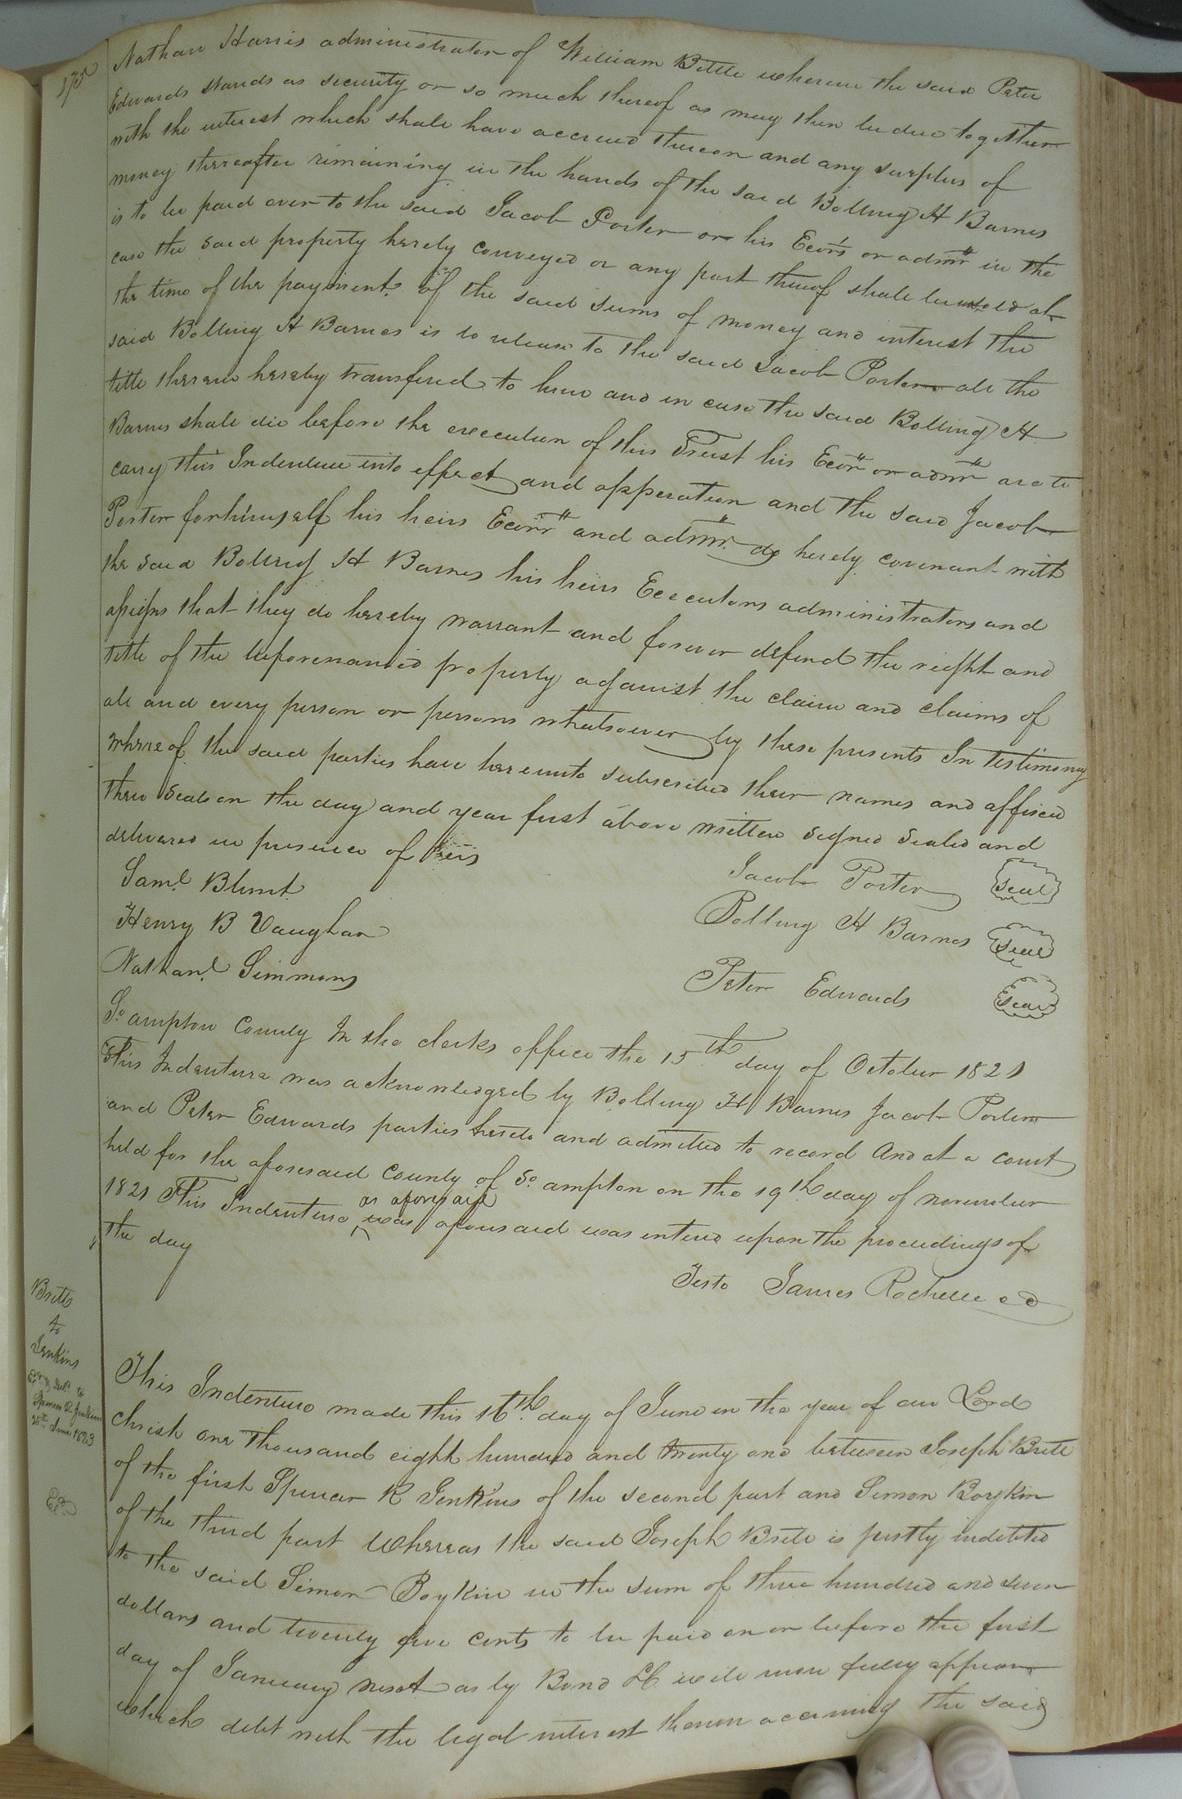 175
Nathan Harris administrator of William Bittle wherein the said Peter
Edwards stands as security or so much thereof as may then be due together
with the interest which shall have accrued thereon and any surplus of
money thereafter remaining in the hands of the said Bolling H Barnes
is to be paid over to the said Jacob Porter or his Ecors or admrs in the
case the said property hereby conveyed or any part thereof shall be unsold at
the time of the payment of the said sums of money and interest the
said Bolling H Barnes is to release to the said Jacob Porter all the
title therein hereby transfered to him and in case the said Bolling H
Barnes shall die before the execution of this Trust his Ecors or admrs are to
carry this Indenture into effect and opperation and the said Jacob
Porter for himself his heirs Ecors and admrs do hereby covenant with
the said Bolling H Barnes his heirs Executors administrators and
assigns that they do hereby warrant and forever defend the right and
title of the beforenamed property against the claim and claims of
all and every person or persons whatsoever by these presents In testimony
whereof the said parties have hereunto subscribed their names and affixed
their Seals on the day and year first above written Signed Sealed and
delivered in presence of
Saml Blunt
Henry B Vaughan
Nathanl Simmons
Jacob Porter Seal
Bolling H Barnes Seal
Peter Edwards Seal
So ampton County In the clerks office the 15th day of October 1821
This Indenture was acknowledged by Bolling H Barnes Jacob Porter
and Peter Edwards parties hereto and admitted to record And at a court
held for the aforesaid County of So ampton on the 19th day of november
1821 This Indenture as aforesaid was aforesaid was entered upon the proceedings of
the day
Teste James Rochelle
Britt
to
Jenkins
Spencer R Jenkins
This Indenture made this 16th day of June in the year of our Lord
christ one thousand eight hundred and twenty one between Joseph Britt
of the first Spencer R Jenkins of the second part and Simon Boykin
of the third part Whereas the said Joseph Britt is justly indebted
to the said Simon Boykin in the sum of three hundred and seven
dollars and twenty five cents to be paid on or before the first
day of January next as by Bond &c will more fully appear
which debt with the legal interest thereon accruing the said